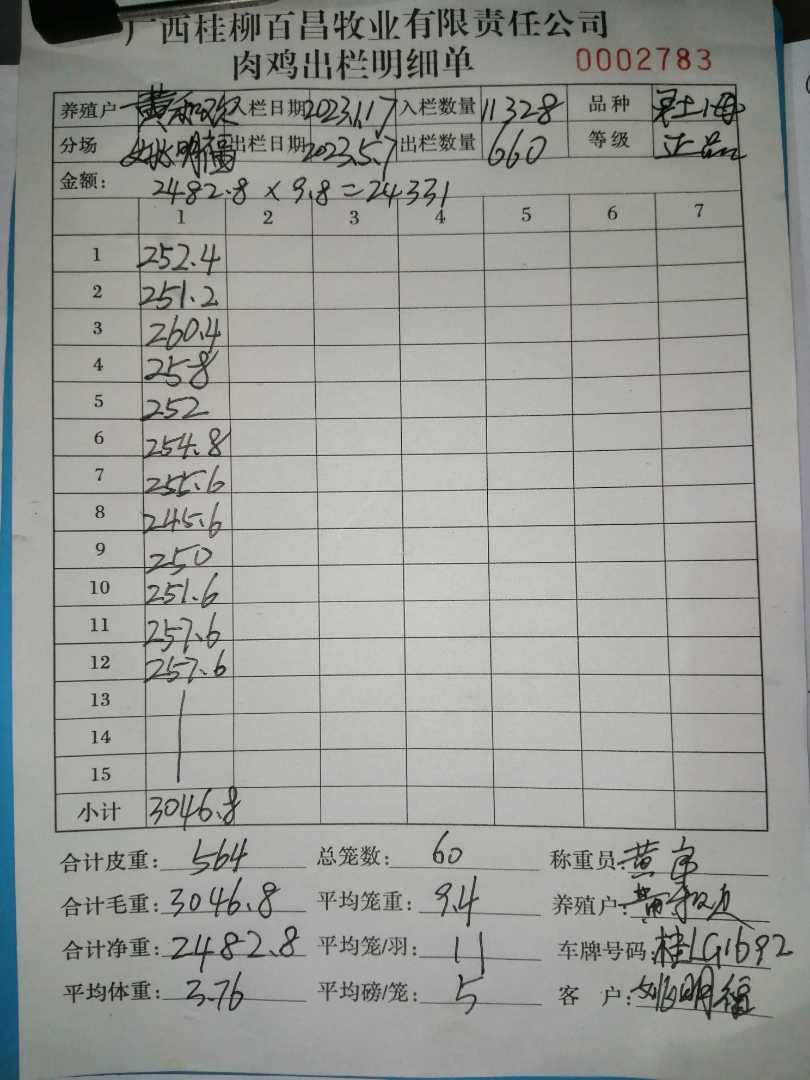 广西桂柳百昌牧业有限责任公司
肉鸡出栏明细单 0002783
养殖户 黄和欢 入栏日期 2023.1.17 入栏数量 11328 品种 土母
分场 姚明福 出栏日期 2023.5.7 出栏数量 660 等级 正品
金额: 2482.8 × 9.8 = 24331
1 2 3 4 5 6 7
1 252.4
2 251.2
3 260.4
4 258
5 252
6 254.8
7 255.6
8 245.6
9 250
10 251.6
11 257.6
12 257.6
13
14
15
小计 3046.8
合计皮重: 564 总笼数: 60 称重员: 黄
合计毛重: 3046.8 平均笼重: 9.4 养殖户: 黄和欢
合计净重: 2482.8 平均笼/羽: 11 车牌号码: 桂LG1692
平均体重: 3.76 平均磅/笼: 5 客户: 姚明福